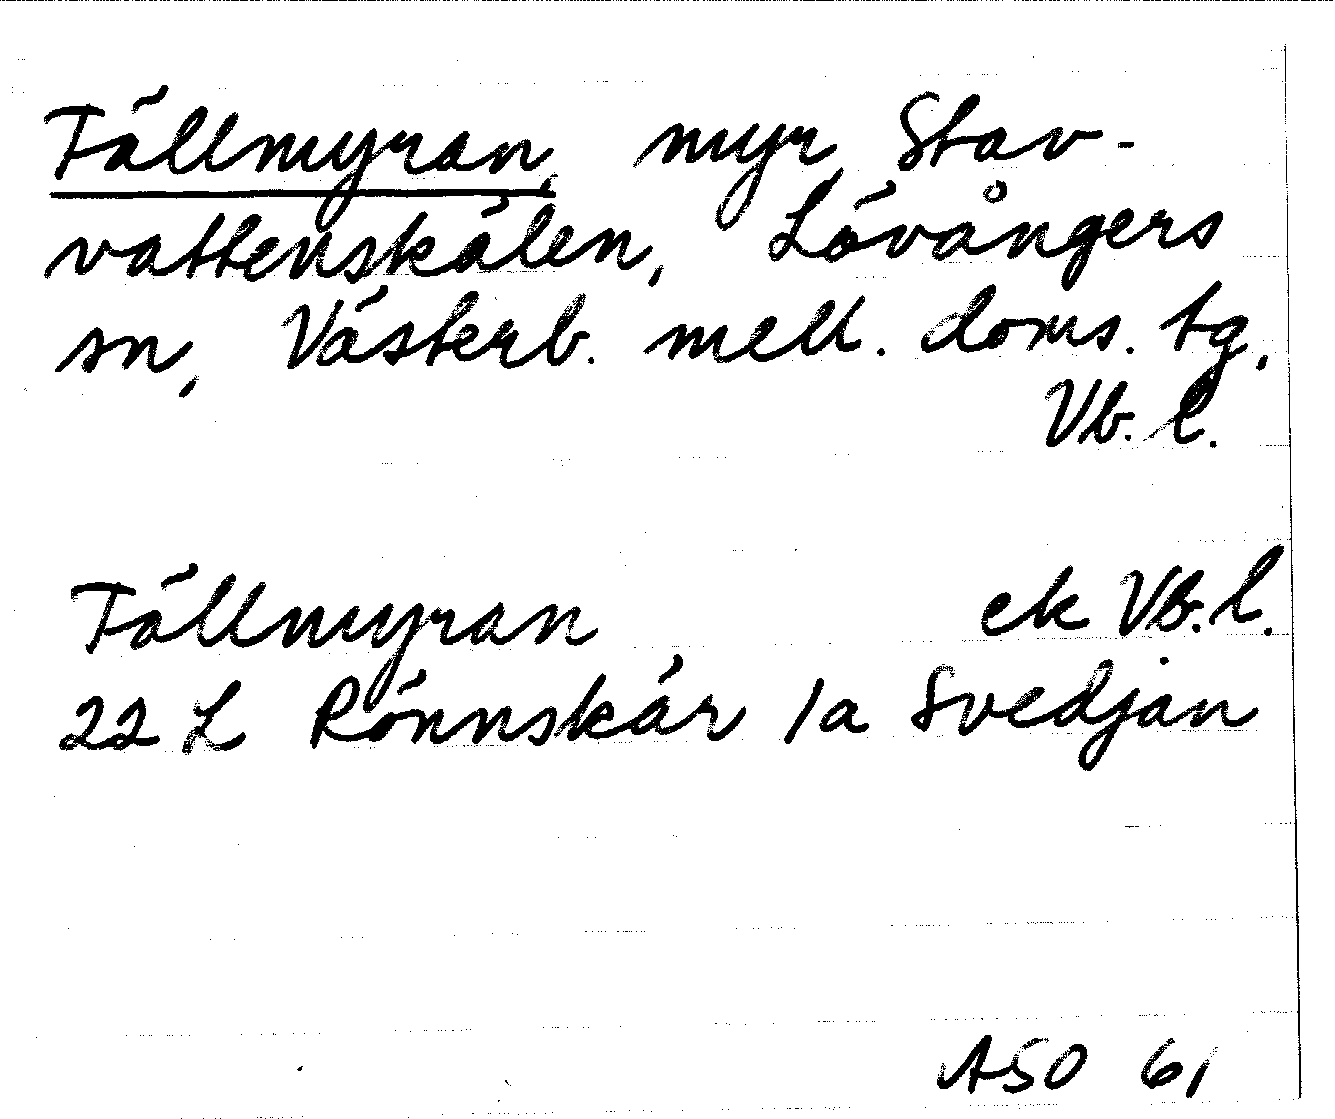 Tällmyran, myr Stav-
vattenskälen, Lövångers
sn, Västerb. mell. doms. tg.
Vb. l.
Tällmyran ek Vb. l.
22 L Rönnskär 1a Svedjan
ASO 61